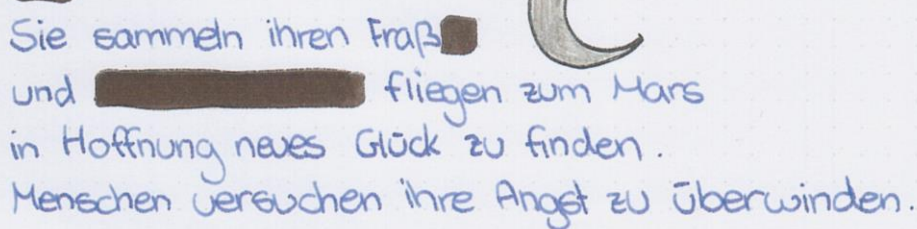 Sie sammeln ihren Fraß
und fliegen zum Mars
in Hoffnung neues Glück zu finden.
Menschen versuchen ihre Angst zu überwinden.